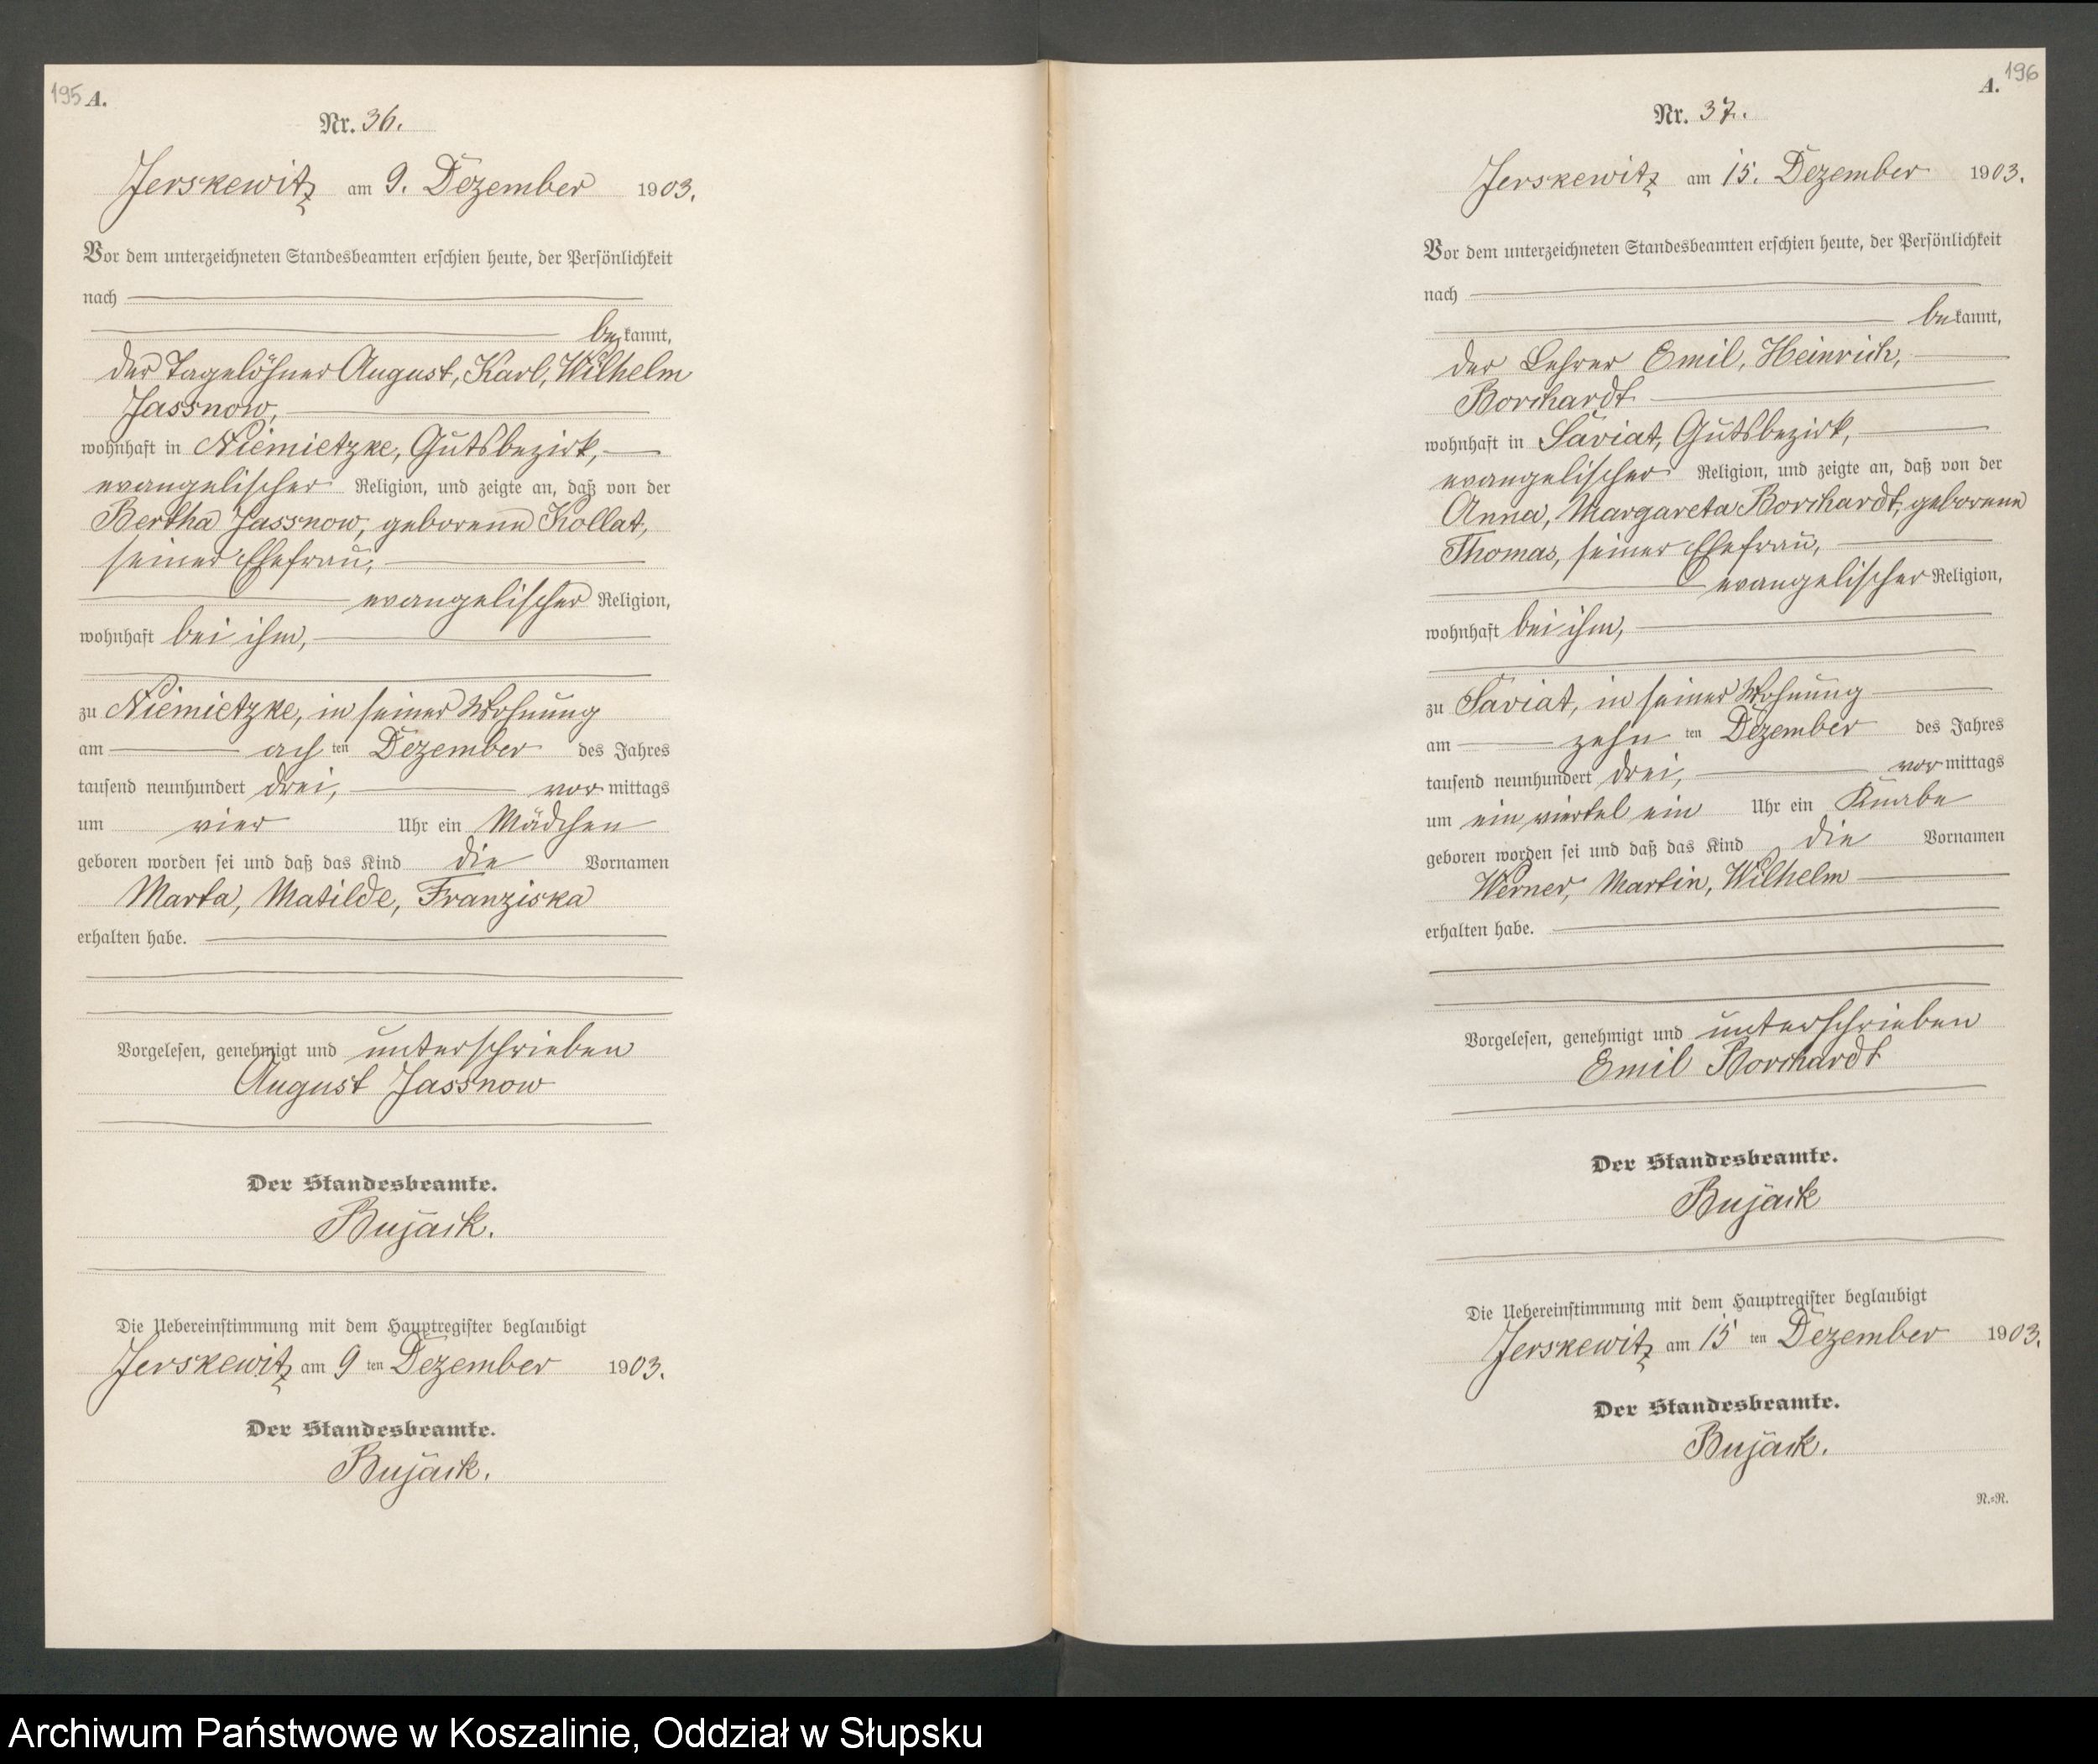 195 A.
Nr. 36.
Jerskewitz am 9. Dezember 1903.
Vor dem unterzeichneten Standesbeamten erschien heute, der Persönlichkeit
nach
bekannt,
der Tagelöhner August, Karl, Wilhelm
Jassnow,
wohnhaft in Niemietzke, Gutsbezirk,
evangelischer Religion, und zeigte an, daß von der
Bertha Jassnow, geborene Kollat,
seiner Ehefrau,
evangelischer Religion,
wohnhaft bei ihm,
zu Niemietzke, in seiner Wohnung
am achten Dezember des Jahres
tausend neunhundert drei, vormittags
um vier Uhr ein Mädchen
geboren worden sei und daß das Kind die Vornamen
Marta, Matilde, Franziska
erhalten habe.
Vorgelesen, genehmigt und unterschrieben
August Jassnow
Der Standesbeamte.
Bujack.
Die Uebereinstimmung mit dem Hauptregister beglaubigt
Jerskewitz am 9 ten Dezember 1903.
Der Standesbeamte.
Bujack.
A. 196
Nr. 37.
Jerskewitz am 15. Dezember 1903.
Vor dem unterzeichneten Standesbeamten erschien heute, der Persönlichkeit
nach
bekannt,
der Lehrer Emil, Heinrich,
Borchardt
wohnhaft in Saviat, Gutsbezirk,
evangelischer Religion, und zeigte an, daß von der
Anna, Margareta Borchardt, geborene
Thomas, seiner Ehefrau,
evangelischer Religion,
wohnhaft bei ihm,
zu Saviat, in seiner Wohnung
am zehnten Dezember des Jahres
tausend neunhundert drei, vormittags
um ein viertel ein Uhr ein Knabe
geboren worden sei und daß das Kind die Vornamen
Werner, Martin, Wilhelm
erhalten habe.
Vorgelesen, genehmigt und unterschrieben
Emil Borchardt
Der Standesbeamte.
Bujack
Die Uebereinstimmung mit dem Hauptregister beglaubigt
Jerskewitz am 15 ten Dezember 1903.
Der Standesbeamte.
Bujack.
N.=R.
Archiwum Państwowe w Koszalinie, Oddział w Słupsku